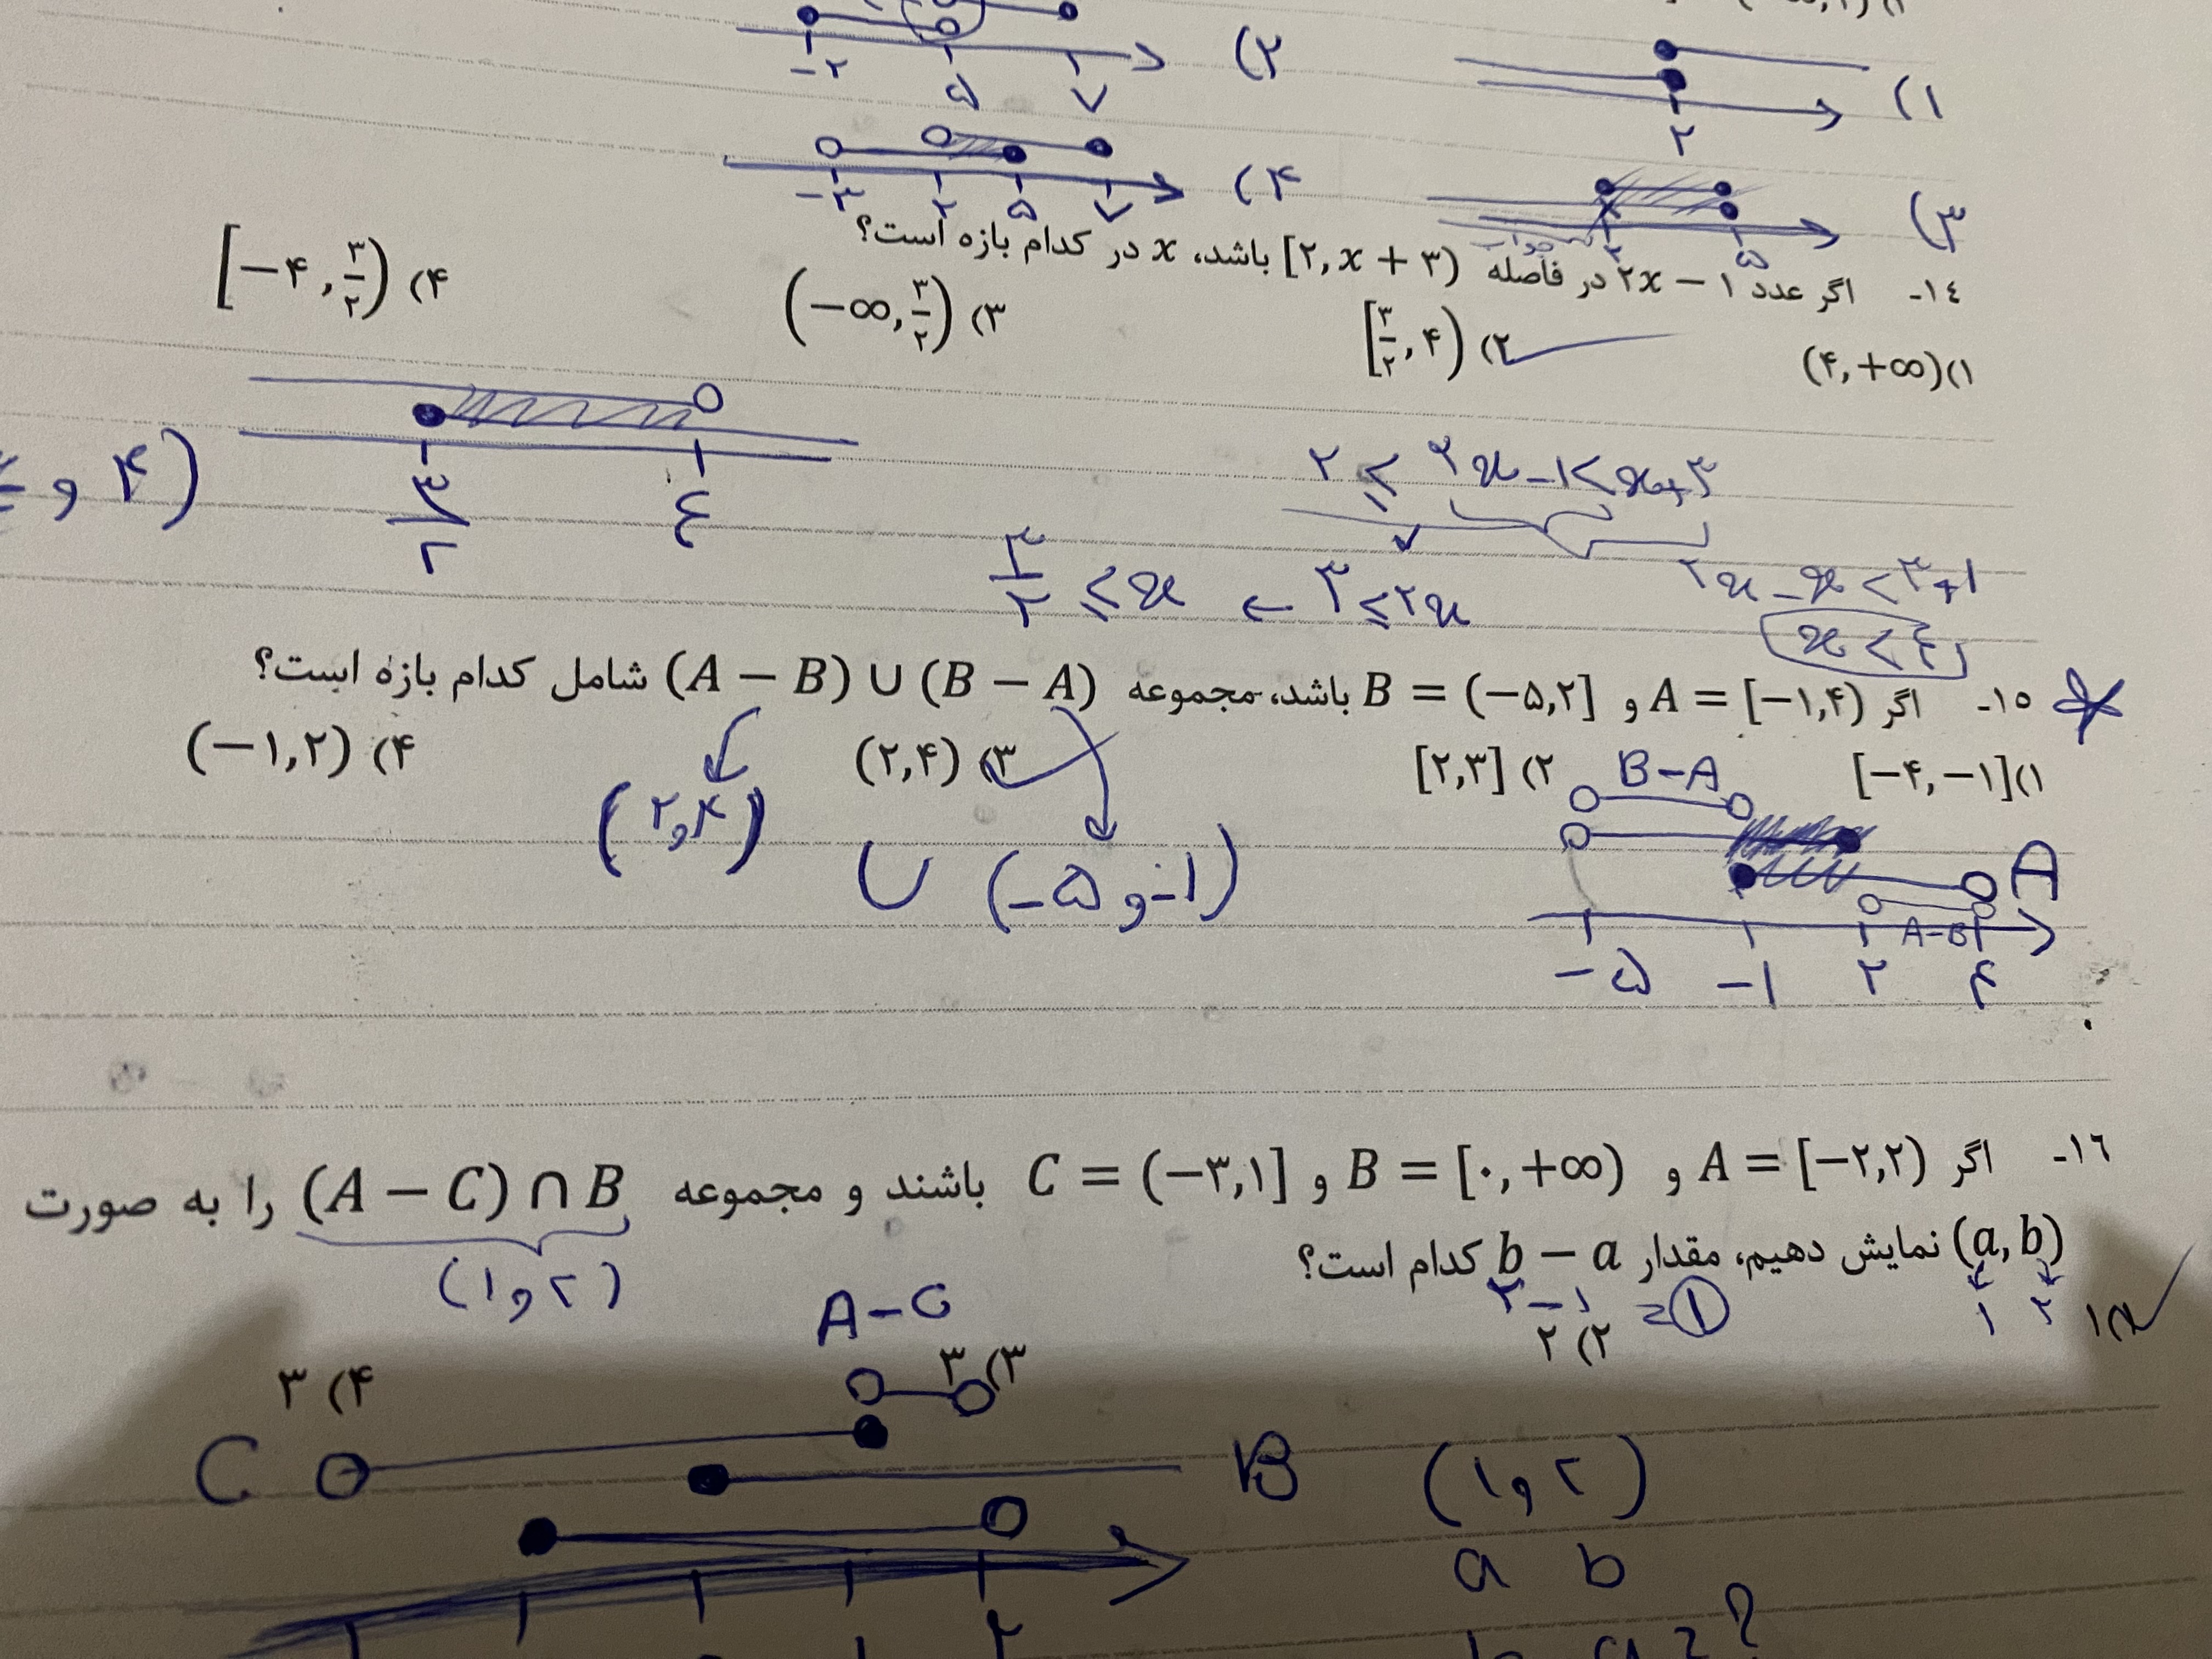 ۱)
۲
۲)
-۲ ۵ ۷
۳)
۲ ۵
جواب
۴)
-۳ ۲ ۵ ۷
۱٤- اگر عدد ۲x − ۱ در فاصله [۲, x + ۳) باشد، x در کدام بازه است؟
۱) (۴, +∞)
۲) [۳/۲, ۴)
۳) (−∞, ۳/۲)
۴) [−۴, ۳/۲)
۲ ≤ ۲x − ۱ < x + ۳
۲x − x < ۳ + ۱
x < ٤
۳ ≤ ۲x → ۳/۲ ≤ x
۳/۲ ٤
و ۴)
۱٥- اگر A = [−۱,۴) و B = (−۵,۲] باشد، مجموعه (A − B) ∪ (B − A) شامل کدام بازه است؟
۱) [−۴, −۱]
۲) [۲,۳]
۳) (۲,۴)
۴) (−۱,۲)
(۲و۴) ∪ (-۵و-۱)
B-A
A
A-B
-۵ -۱ ۲ ۴
۱٦- اگر A = [−۲,۲) و B = [۰, +∞) و C = (−۳,۱] باشند و مجموعه (A − C) ∩ B را به صورت
(a, b) نمایش دهیم، مقدار b − a کدام است؟
(۱و۲)
۱ ۲
۲-۱ = ۱
۱) ۱
۲) ۲
۳) ۳
۴) ۳
A-C
C
B
(۱و۲)
a b
۲